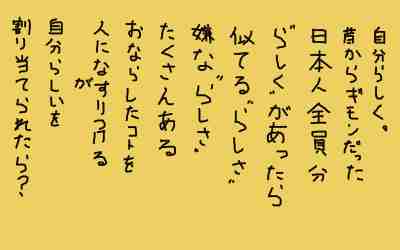 自分らしく。
昔からギモンだった
日本人全員分
"らしく"があったら
似てる"らしさ"
嫌な"らしさ"
たくさんある
おならしたコトを
人になすりつける
が
自分らしいを
割り当てられたら?